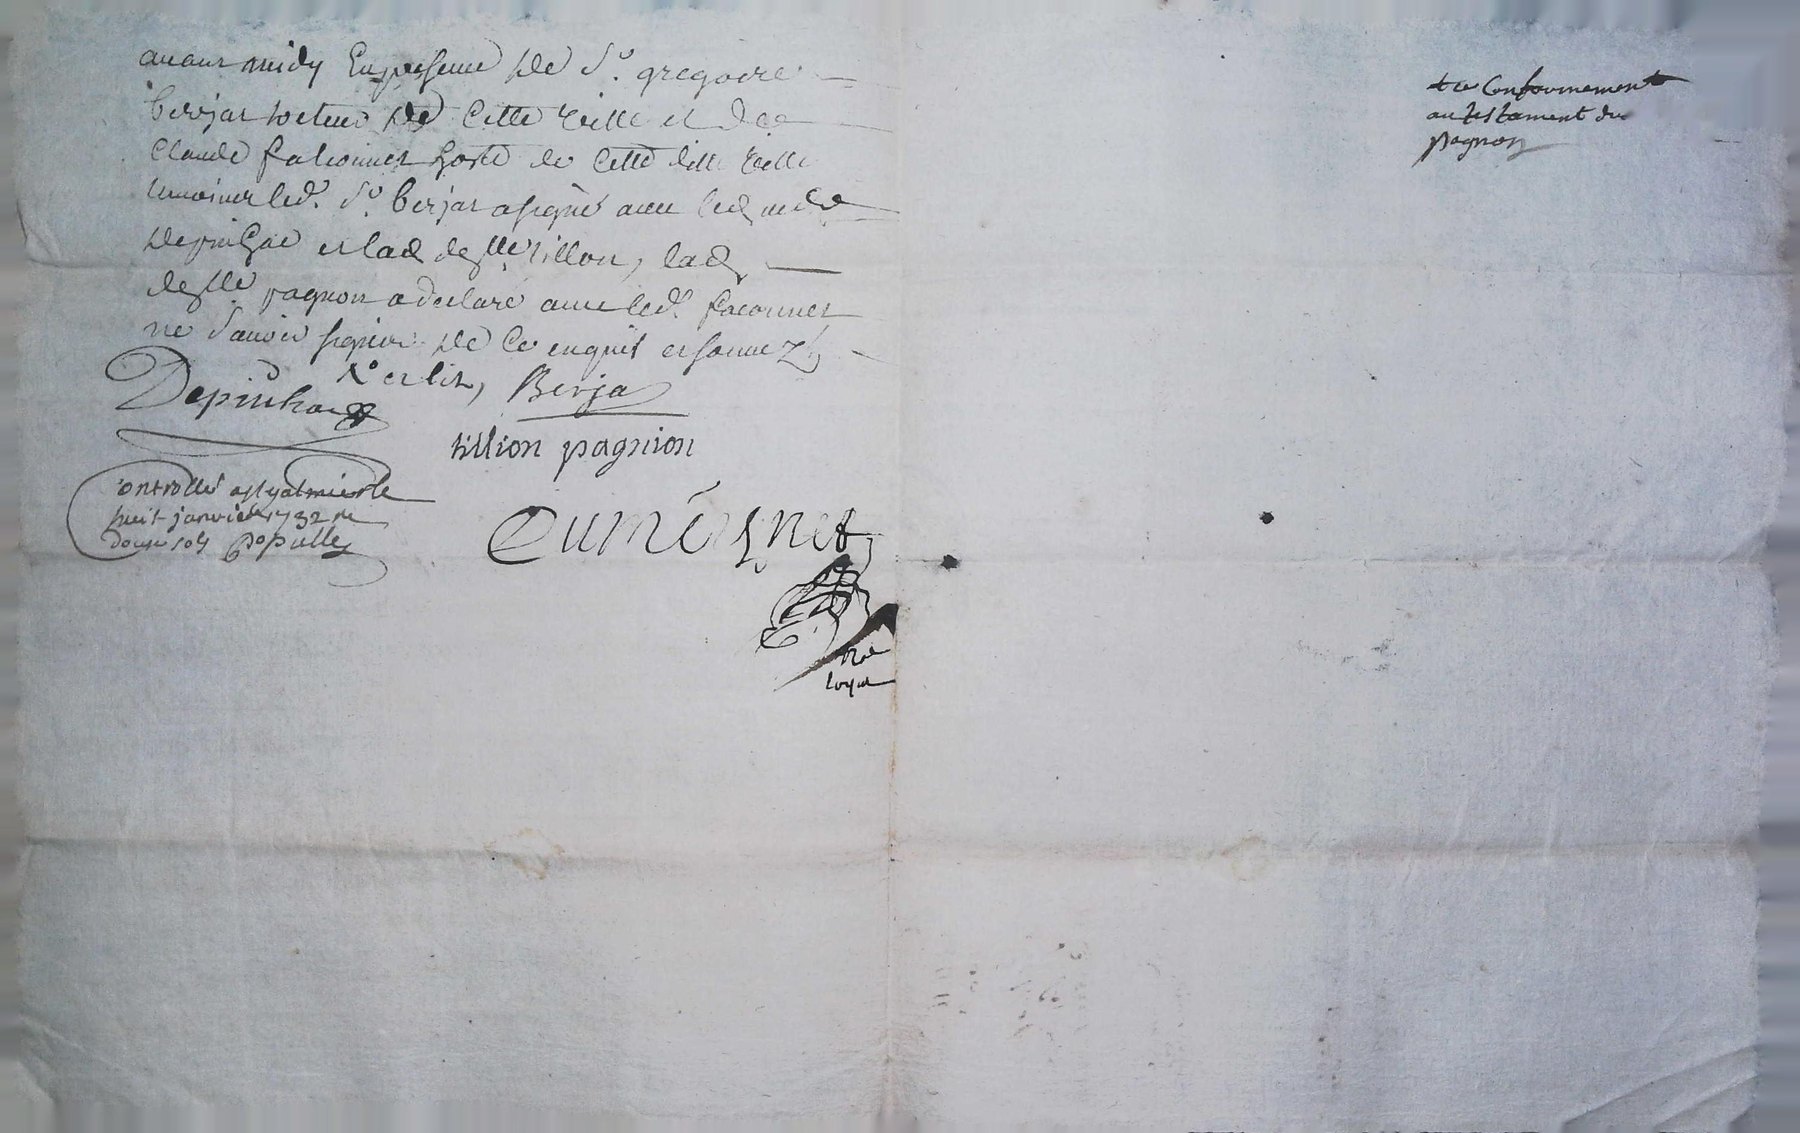 auant midy En presence de Sr. gregoire
berjat docteur de Cette ville et de
Claude falconnet hoste de Cette ditte ville
temoins led. Sr. berjat a signé auec led
depinhac et lad delle tillon, lad
delle pagnon a declaré auec led. faconnet
ne Sauoir signer de Ce enquis et sommez
Depinhac
Berja
tillion pagnion
Controllé a St galmier le
huit janvier 1732 r
douze sols populle
Dumeygnet
Nore
royal
+ et Conformement
au testament du
pagnon